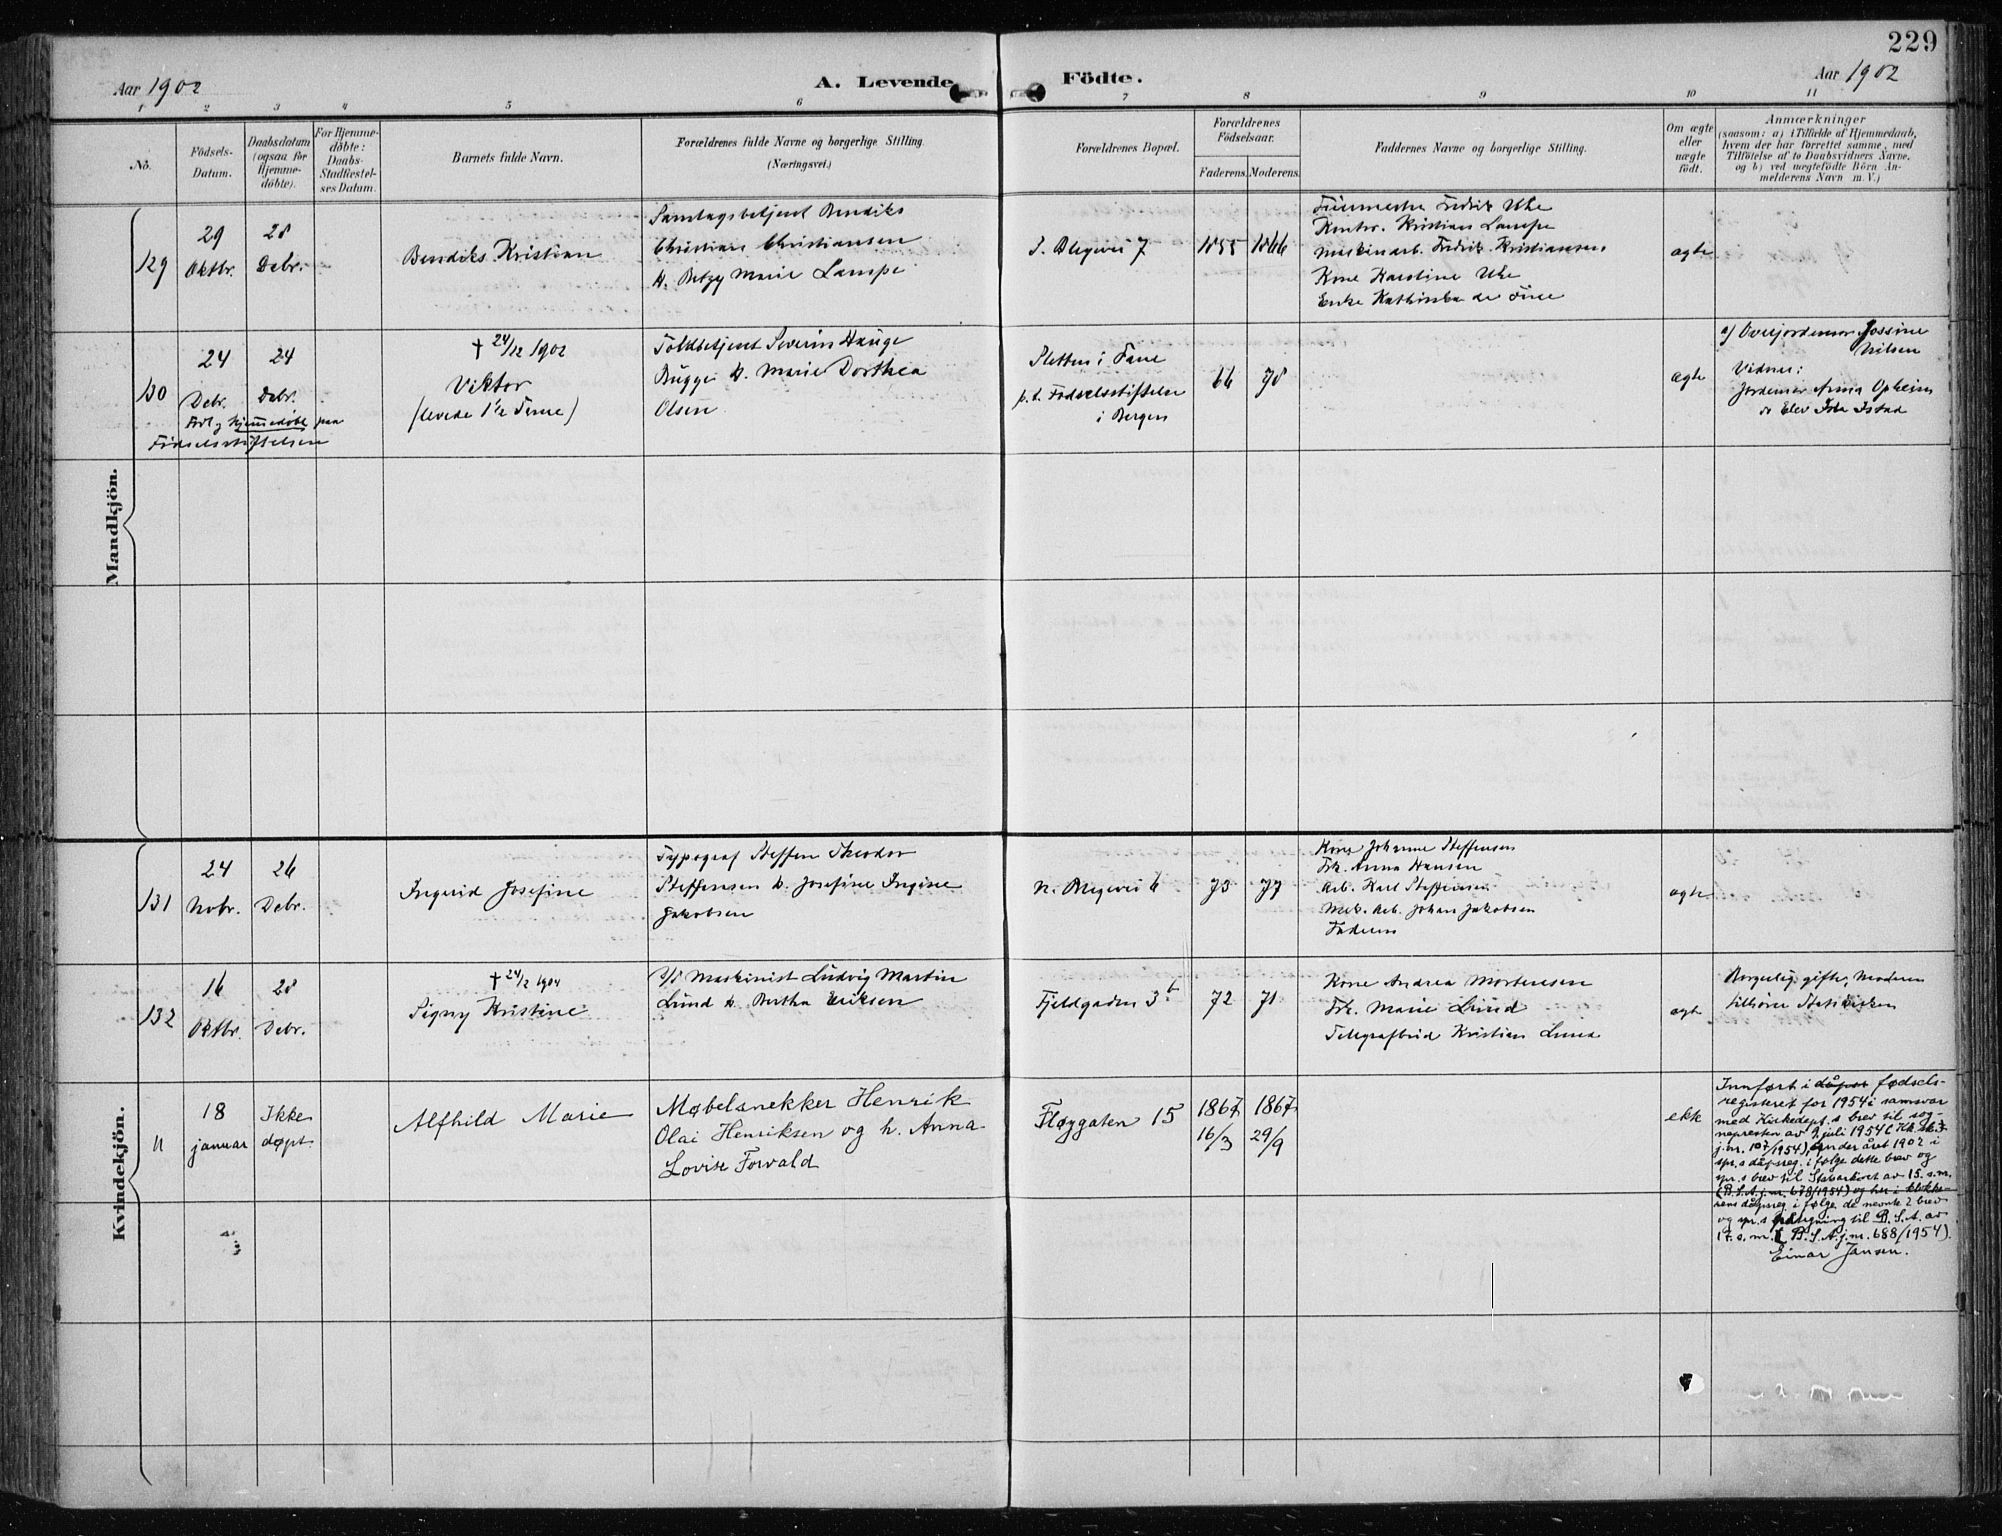 229
Aar 1902
A. Levende
Födte.
Aar 1902
1 2 3 4 5 6 7 8 9 10 11
No.
Födsels-
Datum.
Daabsdatum
(ogsaa for
Hjemme-
döbte).
For Hjemme-
døbte:
Daabs-
Stadfæstel-
ses Datum.
Barnets fulde Navn.
Forældrenes fulde Navne og borgerlige Stilling.
(Næringsvei.)
Forældrenes Bopæl.
Forældrenes
Födselsaar.
Faderens. Moderens.
Faddernes Navne og borgerlige Stilling.
Om ægte
eller
uægte
födt.
Anmærkninger
(saasom: a) i Tilfælde af Hjemmedaab,
hvem der har forrettet samme, med
Tilföielse af to Daabsvidners Navne,
og b) ved uægtefödte Börn An-
melderens Navn m. V.)
Mandkjön.
129
29
Oktbr.
28
Debr.
Bendiks Kristian
Bendiks
Christian Christiansen
H. Betzy Marie Lampe
S. Blegvei 7
1855
1866
Fredrik Uhe
Kontor. Kristian Lampe
Maskinarb. Fredrik Kristiansen
Kone Karoline Uhe
Enke Kathinka de Fine
ægte
130
24
Debr.
24
Debr.
Født og hjemmedøbt paa
Fødselsstiftelsen
† 24/12 1902
Viktor
(levede 1½ Time)
Toldbetjent Severin Hauge
Bugge H. Marie Dorthea
Olsen
Sletten i Fane
p.t. Fødselsstiftelsen
i Bergen
66
78
ægte
a) Overjordemor Jossine
Nilsen
Vidner:
Jordemor Anna Opheim
& Elev Ida Istad
Kvindekjön.
131
24
Novbr.
26
Debr.
Ingerid Josefine
Typograf Steffen Theodor
Steffensen H. Josefine Ingine
Jakobsen
N. Blegvei 6
73
77
Kone Johanne Steffensen
Frk. Anna Hansen
Arb. Karl Steffensen
Mek. Arb. Johan Jakobsen
Faderen
ægte
132
16
Oktbr.
28
Debr.
† 24/2 1904
Signy Kristine
Maskinist Ludvig Martin
Lund H. Bertha Eriksen
Fjeldgaden 3b
72
71
Kone Andrea Mortensen
Frk. Marie Lund
Telegrafbud Kristian Lund
ægte
Borgerlig gifte, Moderen
tilhører Statskirken
18
januar
Ikke
døpt.
Alfhild Marie
Møbelsnekker Henrik
Olai Henriksen og h. Anna
Lovise Forvald
Fløygaten 15
1867
16/3
1867
29/9
ekte
Innført i dåps fødsels-
registeret for 1954 i samsvar
med Kirkedept.s brev til sog-
nepresten av 9. juli 1954 (Kk.
j.nr. 107/1954), under året 1902 i
spr.s dåpsreg. i følge dette brev og
spr.s brev til Statsarkivet av 15. s.m.
(B.S.A.j.nr. 678/1954) og her i klokke-
rens dåpsreg. i følge de nevnte 2 brev
og spr.s påtegning til B.S.A. av
17. s.m. (B.S.A.j.nr. 688/1954).
Einar Jansen.